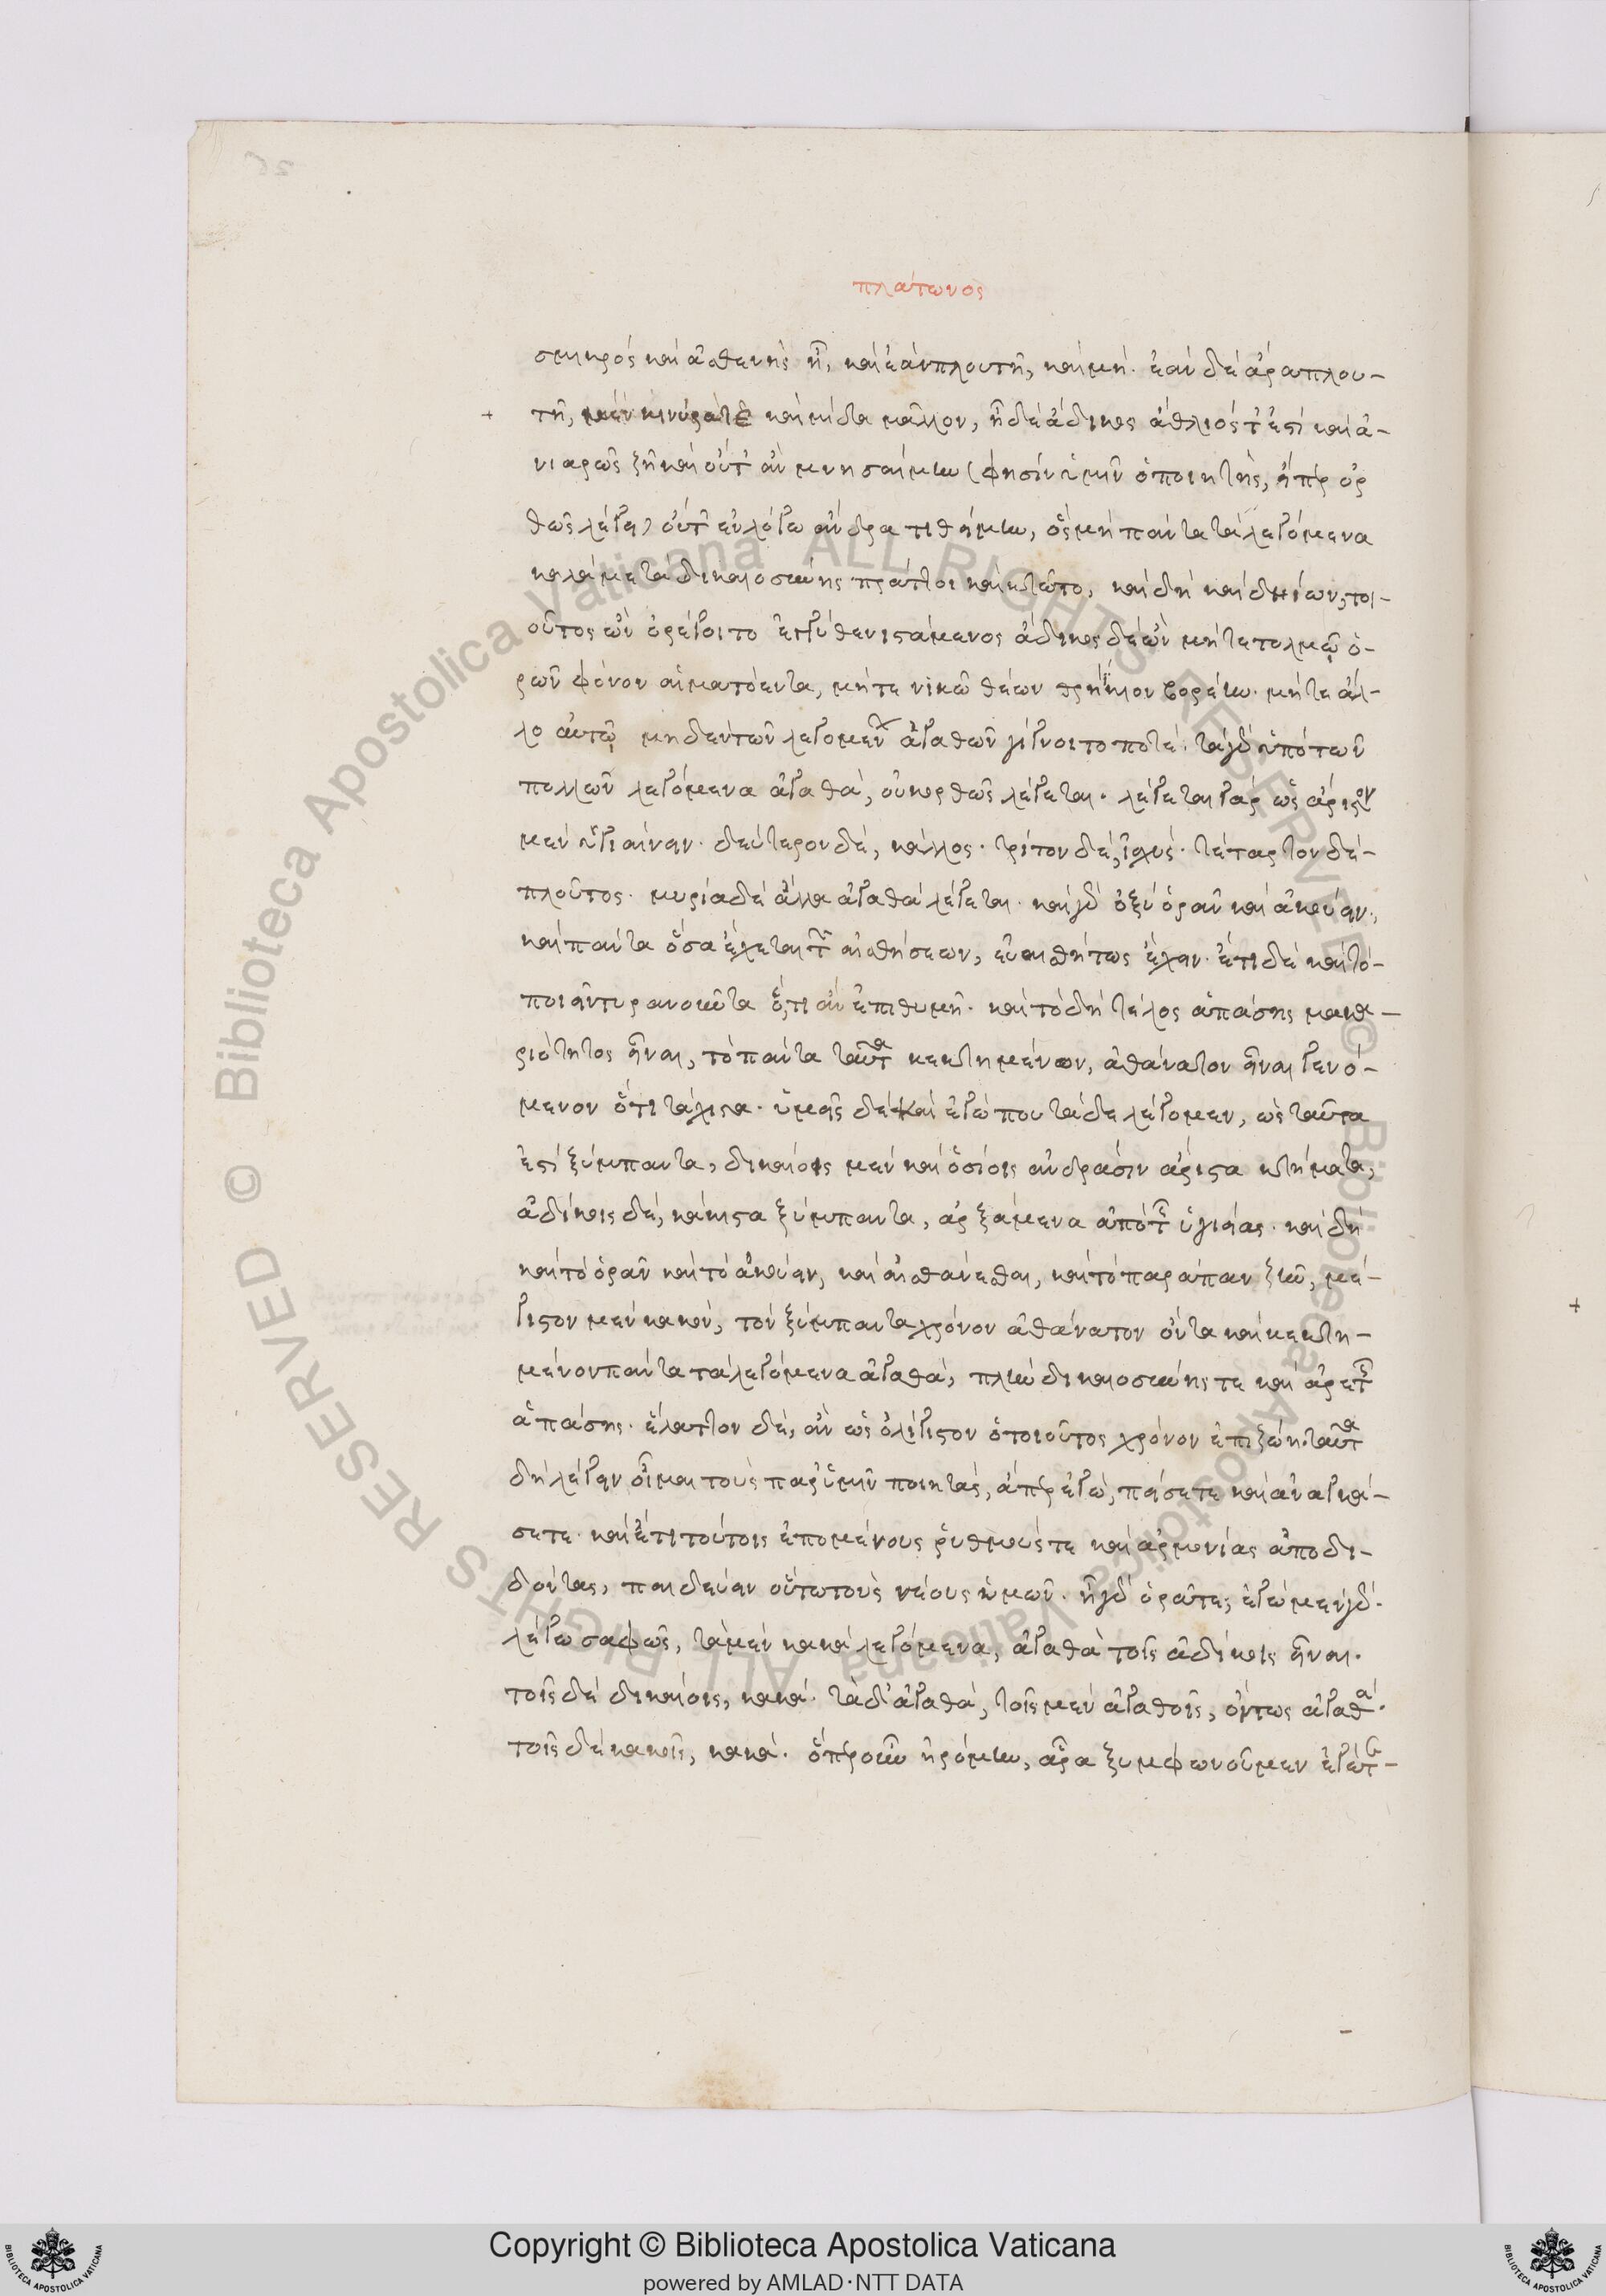 πλάτωνος
σμικρὸς καὶ ἀσθενὴς ᾖ, καὶ ἐὰν πλουτῇ, καὶ μή. ἐὰν δὲ ἄρα πλου-
τῇ, μὲν κινύρα τε καὶ μίδα μᾶλλον, ᾖ δὲ ἄδικος ἄθλιός τ' ἐστὶ καὶ ἀ-
νιαρῶς ζῇ καὶ οὔτ' ἂν μνησαίμην (φησὶν ὑμῖν ὁ ποιητὴς, εἴπερ ὀρ
θῶς λέγει) οὔτ' ἐν λόγω ἄνδρα τιθείμην, ὃς μὴ πάντα τὰ λεγόμενα
καλὰ μετὰ δικαιοσύνης πράττοι καὶ κτῶτο, καὶ δὴ καὶ δηίων, τοι-
οῦτος ὢν ὀρέγοιτο ἐγγύθεν ἱστάμενος ἄδικος δὲ ὢν μήτε τολμῷ ὁ-
ρῶν φόνον αἱματόεντα, μήτε νικῶ θέων θρηίκιον βορέην. μήτε ἄλ-
λο αὐτῷ μηδὲν τῶν λεγομένων ἀγαθῶν γίγνοιτο ποτέ. τὰ γὰρ ὑπὸ τῶν
πολλῶν λεγόμενα ἀγαθὰ, οὐκ ὀρθῶς λέγεται. λέγεται γὰρ ὡς ἄριστον
μὲν ὑγιαίνειν. δεύτερον δὲ, κάλλος. τρίτον δὲ, ἰσχύς. τέταρτον δὲ-
πλοῦτος. μυρία δὲ ἄλλα ἀγαθὰ λέγεται. καὶ γὰρ ὀξὺ ὁρᾶν καὶ ἀκούειν,
καὶ πάντα ὅσα ἔχεται τῶν αἰσθήσεων, εὐαισθήτως ἔχειν. ἔτι δὲ καὶ τὸ-
ποιεῖν τυραννοῦντα ὅ,τι ἂν ἐπιθυμῇ. καὶ τὸ δὴ τέλος ἁπάσης μακα-
ριότητος εἶναι, τὸ πάντα ταῦτα κεκτημένον, ἀθάνατον εἶναι γενό-
μενον ὅτι τάχιστα. ὑμεῖς δὲ καὶ ἐγώ που τάδε λέγομεν, ὡς ταῦτα
ἐστὶ ξύμπαντα, δικαίοις μὲν καὶ ὁσίοις ἀνδράσιν ἄριστα κτήματα,
ἀδίκοις δὲ, κάκιστα ξύμπαντα, ἀρξάμενα ἀπὸ τῆς ὑγιείας. καὶ δὴ
καὶ τὸ ὁρᾶν καὶ τὸ ἀκούειν, καὶ αἰσθάνεσθαι, καὶ τὸ παράπαν ζῆν, μέ-
γιστον μὲν κακὸν, τὸν ξύμπαντα χρόνον ἀθάνατον ὄντα καὶ κεκτη-
μένον πάντα τὰ λεγόμενα ἀγαθὰ, πλὴν δικαιοσύνης τε καὶ ἀρετῆς
ἁπάσης. ἔλαττον δὲ, ἂν ὡς ὀλίγιστον ὁ τοιοῦτος χρόνον ἐπιζώη. ταῦτα
δὴ λέγειν οἶμαι τοὺς παρ' ὑμῖν ποιητὰς, ἅπερ ἐγὼ, πείσετε καὶ ἀναγκά-
σετε. καὶ ἔτι τούτοις ἑπομένους ῥυθμούς τε καὶ ἁρμονίας ἀποδι-
δόντας, παιδεύειν οὕτω τοὺς νέους ἡμῶν. ἦ γὰρ ὁρᾶτε; ἐγὼ μὲν γὰρ.
λέγω σαφῶς, τὰ μὲν κακὰ λεγόμενα, ἀγαθὰ τοῖς ἀδίκοις εἶναι.
τοῖς δὲ δικαίοις, κακά. τὰ δ' ἀγαθὰ, τοῖς μὲν ἀγαθοῖς, ὄντως ἀγαθά.
τοῖς δὲ κακοῖς, κακά. ὅπερ οὖν ἠρόμην, ἆρα ξυμφωνοῦμεν ἐγώ τε-
Copyright © Biblioteca Apostolica Vaticana
powered by AMLAD·NTT DATA
© Biblioteca Apostolica Vaticana ALL RIGHTS RESERVED
© Biblioteca Apostolica Vaticana ALL RIGHTS RESERVED
BIBLIOTECA APOSTOLICA VATICANA
BIBLIOTECA APOSTOLICA VATICANA